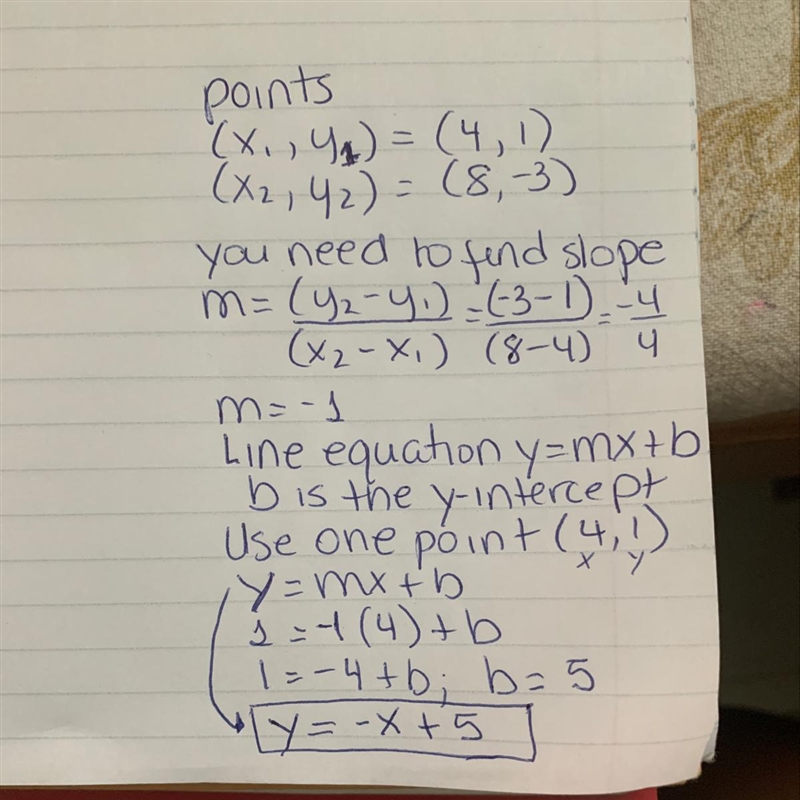 points
(x₁, y₁) = (4, 1)
(x₂, y₂) = (8, -3)
you need to find slope
m = (y₂ - y₁)/(x₂ - x₁) = (-3 - 1)/(8 - 4) = -4/4
m = -1
Line equation y = mx + b
b is the y-intercept
Use one point (4, 1)
x y
y = mx + b
1 = -1(4) + b
1 = -4 + b; b = 5
y = -x + 5